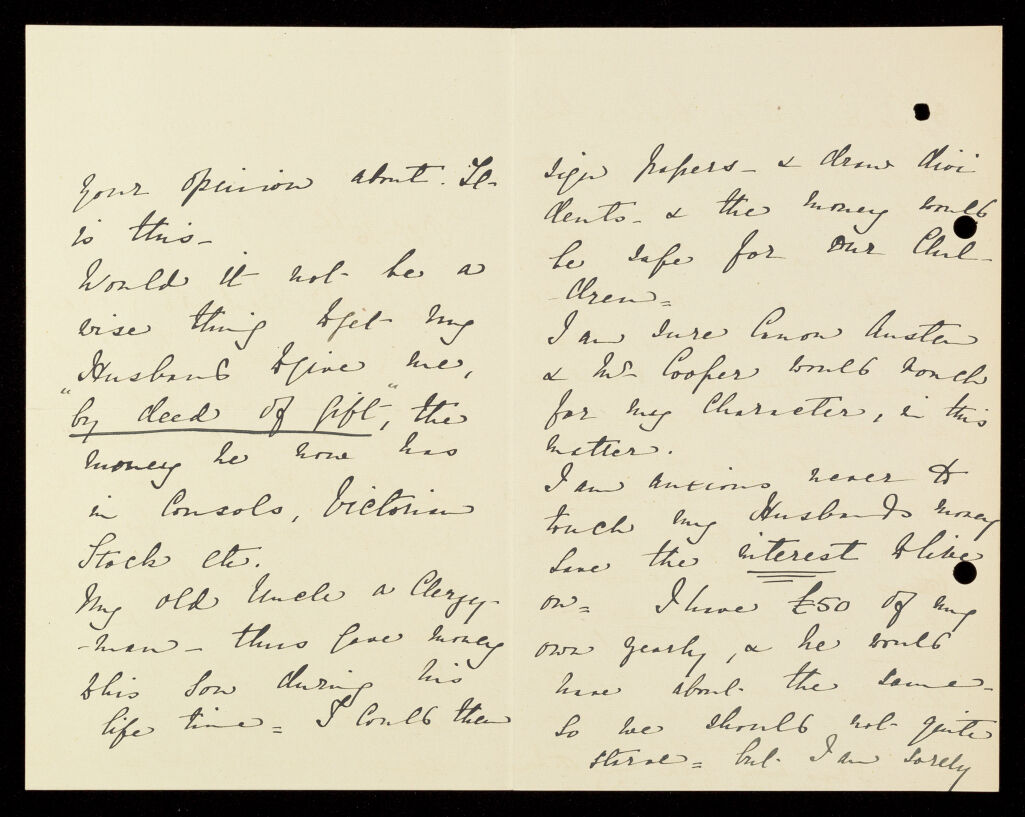 your opinion about. It-
is this-
Would it not be a
wise thing to get my
Husband to give me,
"by deed of gift", the
money he now has
in Consols, Victorian
Stock etc.
My old Uncle a Clergy-
-man - thus gave money
to his Son during his
life time = I could then
sign papers - & draw divi
dents - & the money would
be safe for our Chil-
-dren =
I am sure Canon Austen
& Mr Cooper would vouch
for my Character, in this
matter.
I am anxious never to
touch my Husbands money
save the interest to live
on = I have £50 of my
own yearly, & he would
have about the same -
so we should not quite
starve = but I am sorely